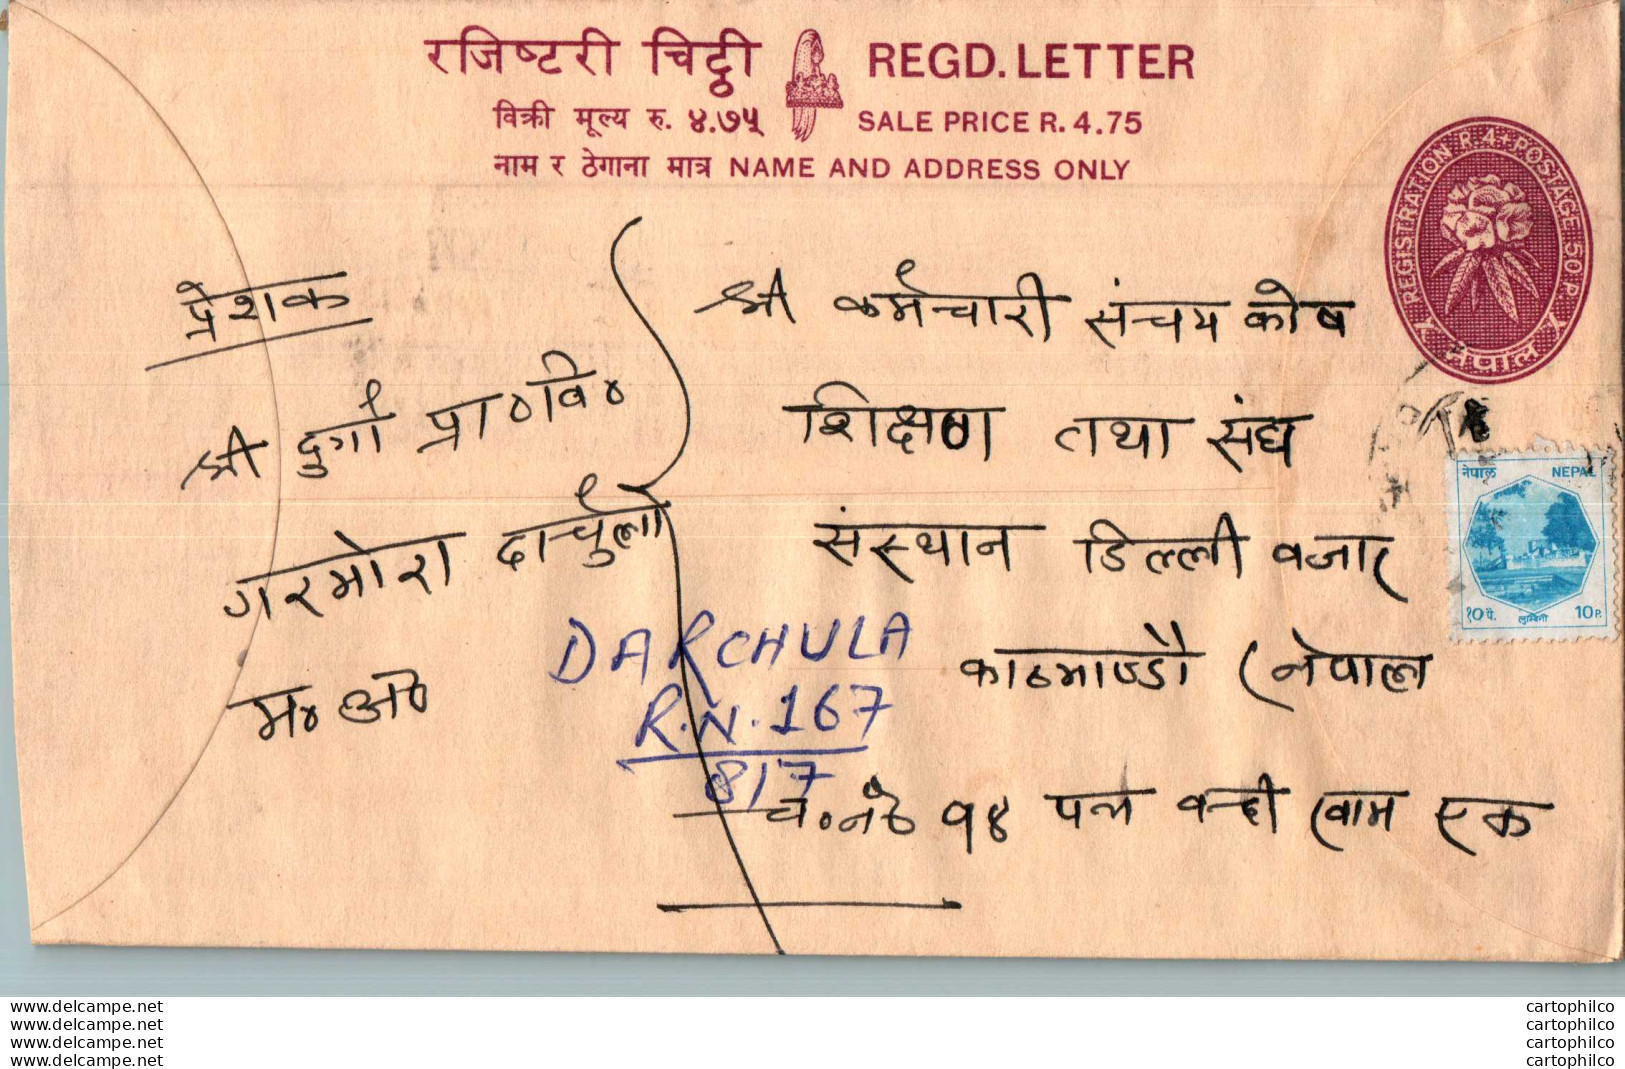 रजिष्टरी चिट्ठी REGD. LETTER
विक्री मूल्य रु. ४.७५ SALE PRICE R. 4.75
नाम र ठेगाना मात्र NAME AND ADDRESS ONLY
REGISTRATION R.4. POSTAGE 50 P.
नेपाल
प्रेशक
श्री दुर्गा प्रा०वि०
गरमोरा दार्चुला
म०अ०
श्री कर्मचारी संचय कोष
शिक्षण तथा संघ
संस्थान डिल्ली वजार
काठमाण्डौ (नेपाल
च०न० १४ पत्र वन्दी खाम एक
DARCHULA
R.N. 167
8/7
नेपाल NEPAL
१० पै. लुम्बिनी 10 P.
www.delcampe.net cartophilco
www.delcampe.net cartophilco
www.delcampe.net cartophilco
www.delcampe.net cartophilco